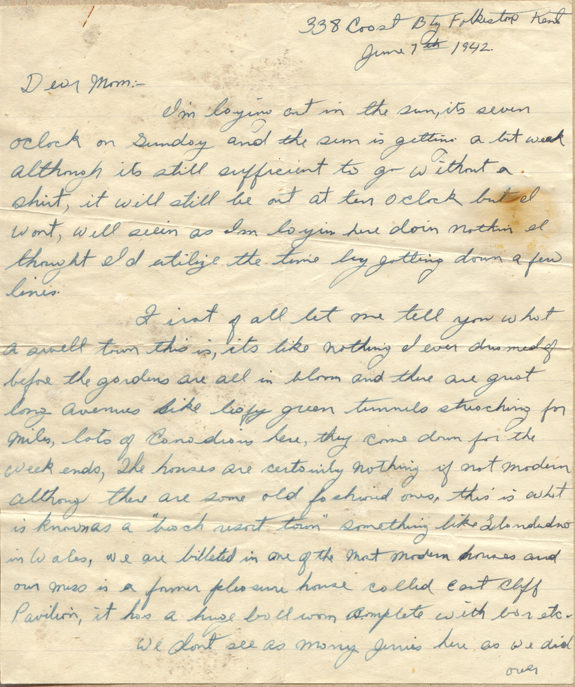 338 Coast Bty Folkeston Kent
June 7th 1942.
Dear Mom:-
I'm laying out in the sun, its seven
oclock on Sunday and the sun is getting a bit weak
although its still sufficient to go without a
shirt, it will still be out at ten oclock but I
wont, well seein as I'm layin here doin nothin I
thought I'd utilize the time by jotting down a few
lines.
First of all let me tell you what
a swell town this is, its like nothing I ever dreamed of
before the gardens are all in bloom and there are great
long avenues like leafy green tunnels streching for
miles, lots of Canadians here, they come down for the
week ends, The houses are certainly nothing if not modern
althoug there are some old fashioned ones, this is what
is known as a "beach resort town" something like Llandudno
in Wales, we are billeted in one of the most modern houses and
our mess is a former pleasure house called East Cliff
Pavilion, it has a huge ball room complete with bar etc.
We dont see as many Jerries here as we did
over